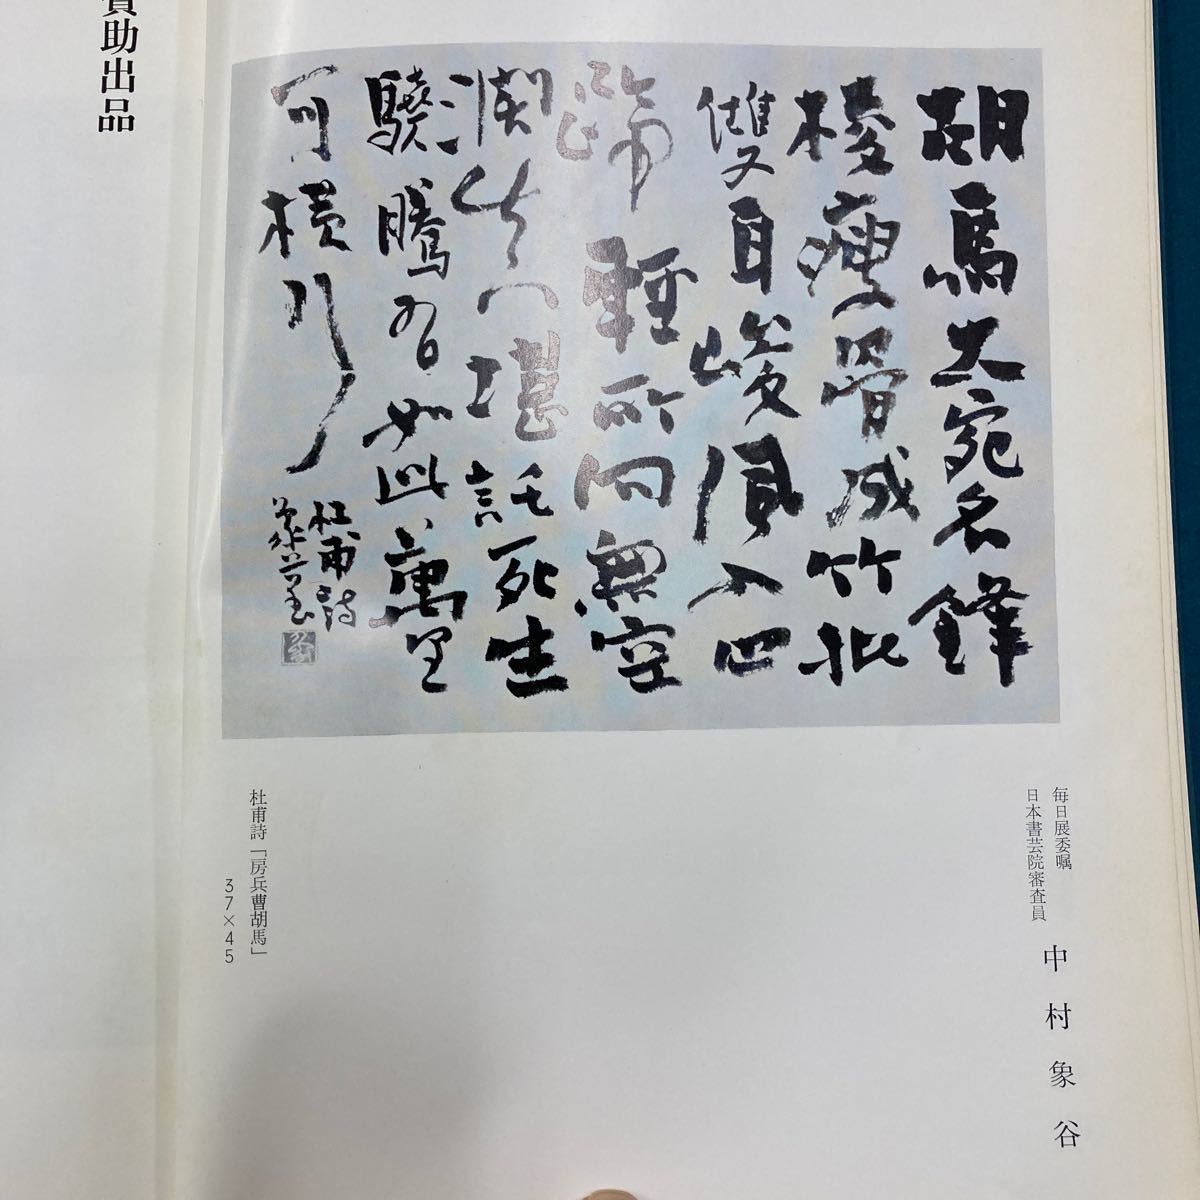 助出品
胡馬大宛名鋒
棱瘦骨成竹批
雙耳峻風入四
蹄輕所向無空
闊真堪託死生
驍騰有如此萬里
可橫行
杜甫詩
象谷
毎日展委嘱
日本書芸院審査員
中村象谷
杜甫詩「房兵曹胡馬」
37×45